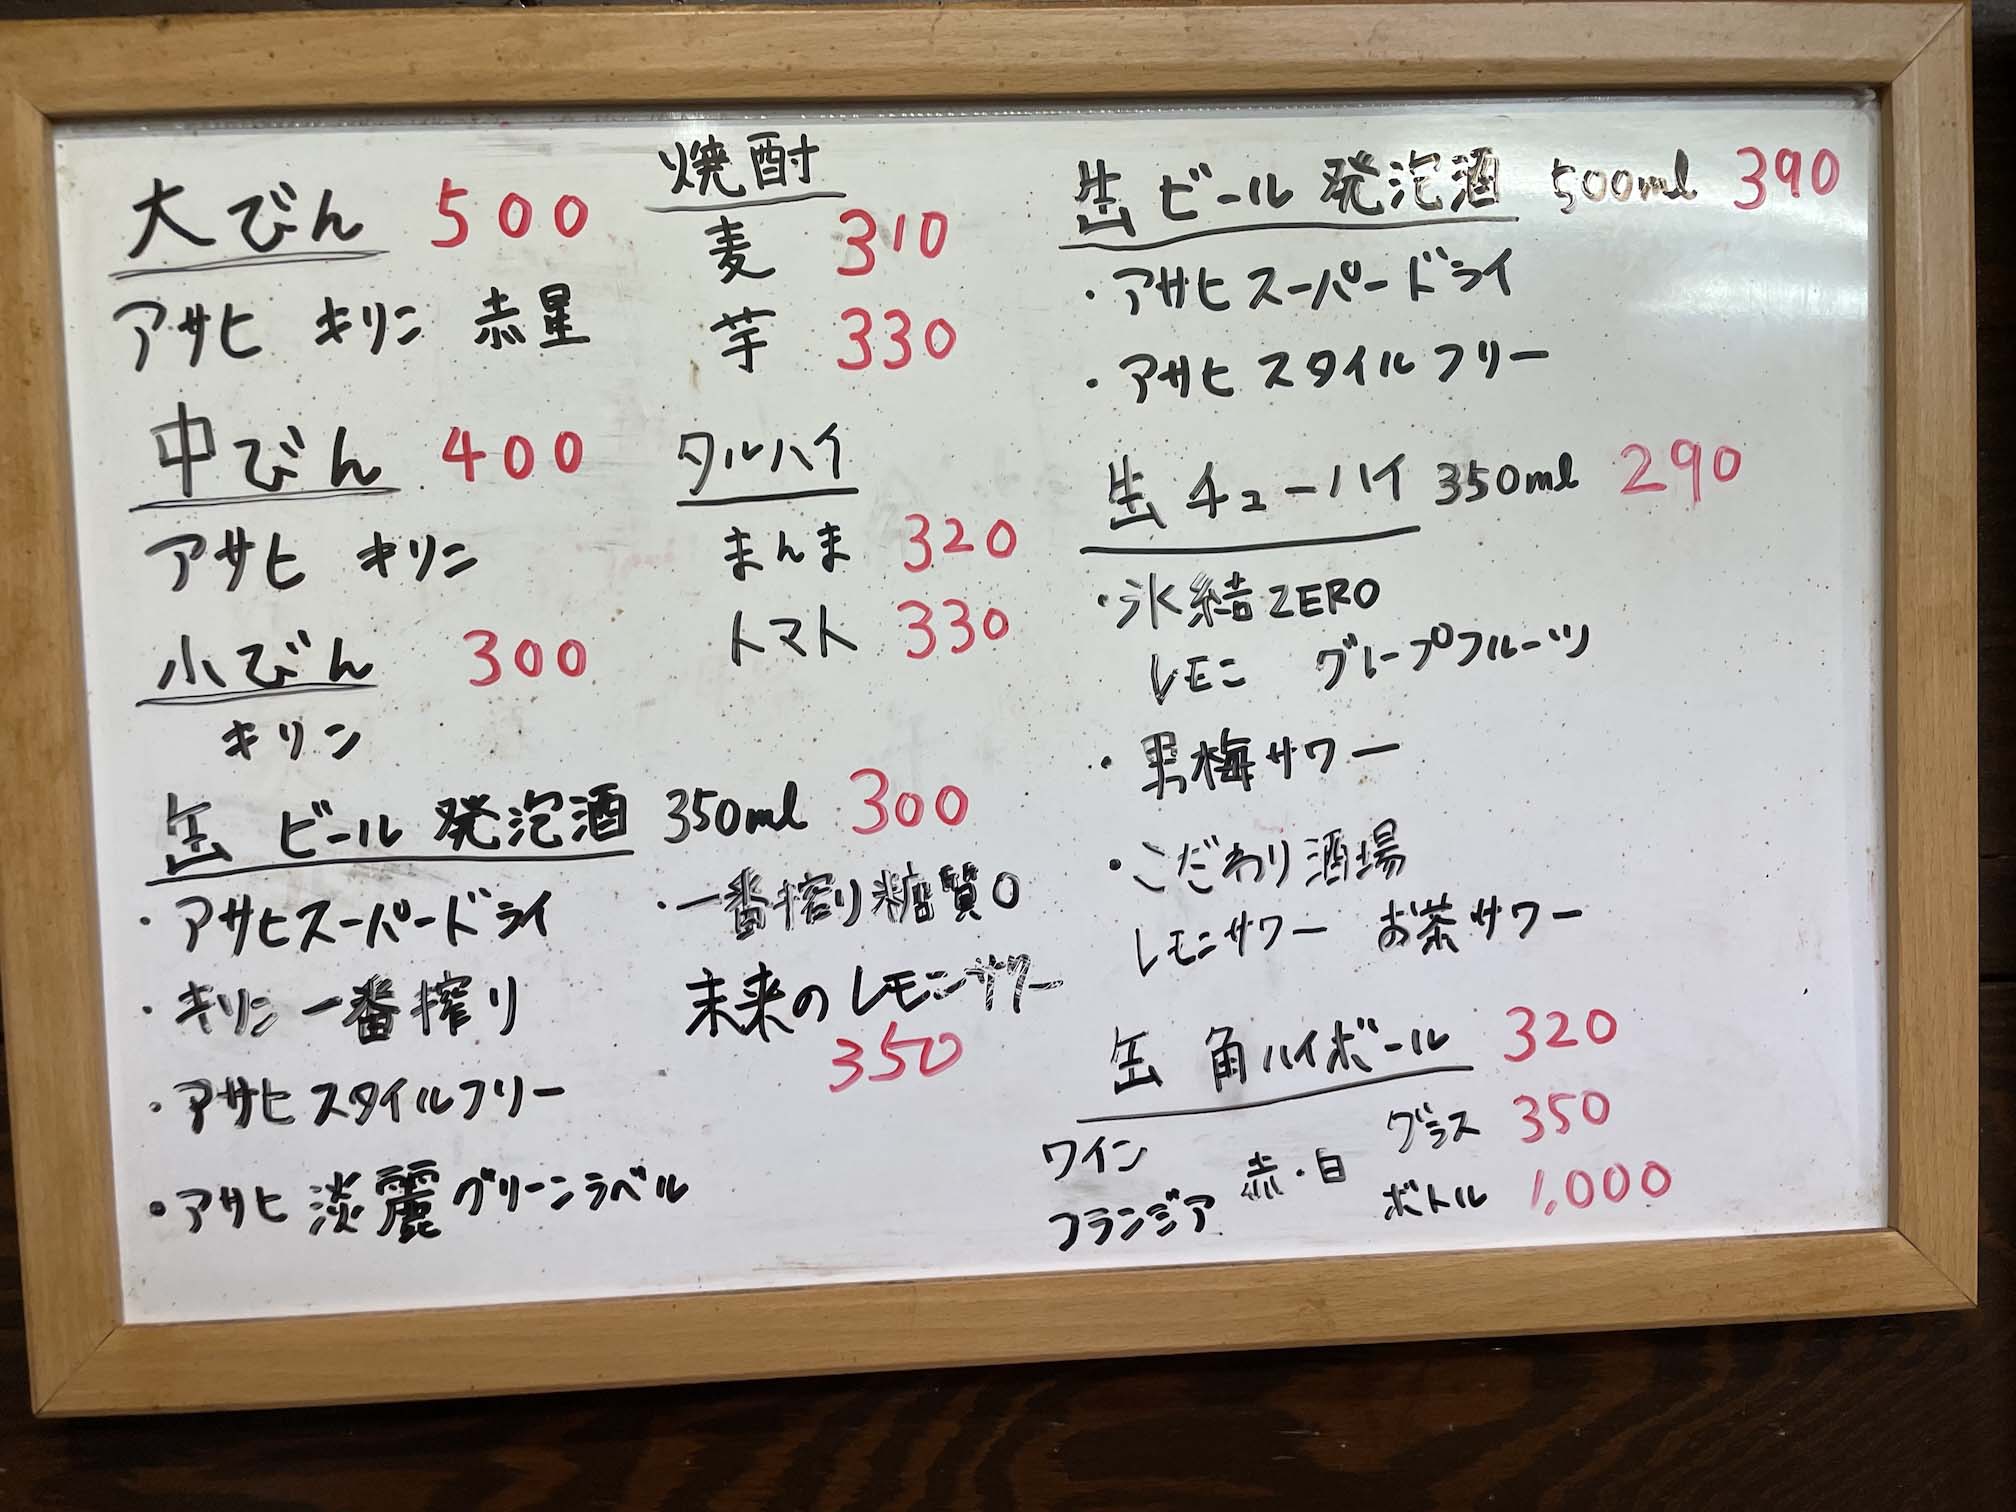 大びん 500
アサヒ キリン 赤星
中びん 400
アサヒ キリン
小びん 300
キリン
焼酎
麦 310
芋 330
タルハイ
まんま 320
トマト 330
缶 ビール 発泡酒 350ml 300
・アサヒスーパードライ
・キリン一番搾り
・アサヒスタイルフリー
・アサヒ 淡麗グリーンラベル
・一番搾り糖質0
未来のレモンサワー
350
缶 ビール 発泡酒 500ml 390
・アサヒスーパードライ
・アサヒスタイルフリー
缶 チューハイ 350ml 290
・氷結ZERO
レモン グレープフルーツ
・男梅サワー
・こだわり酒場
レモンサワー お茶サワー
缶 角ハイボール 320
ワイン
フランジア 赤・白
グラス 350
ボトル 1,000